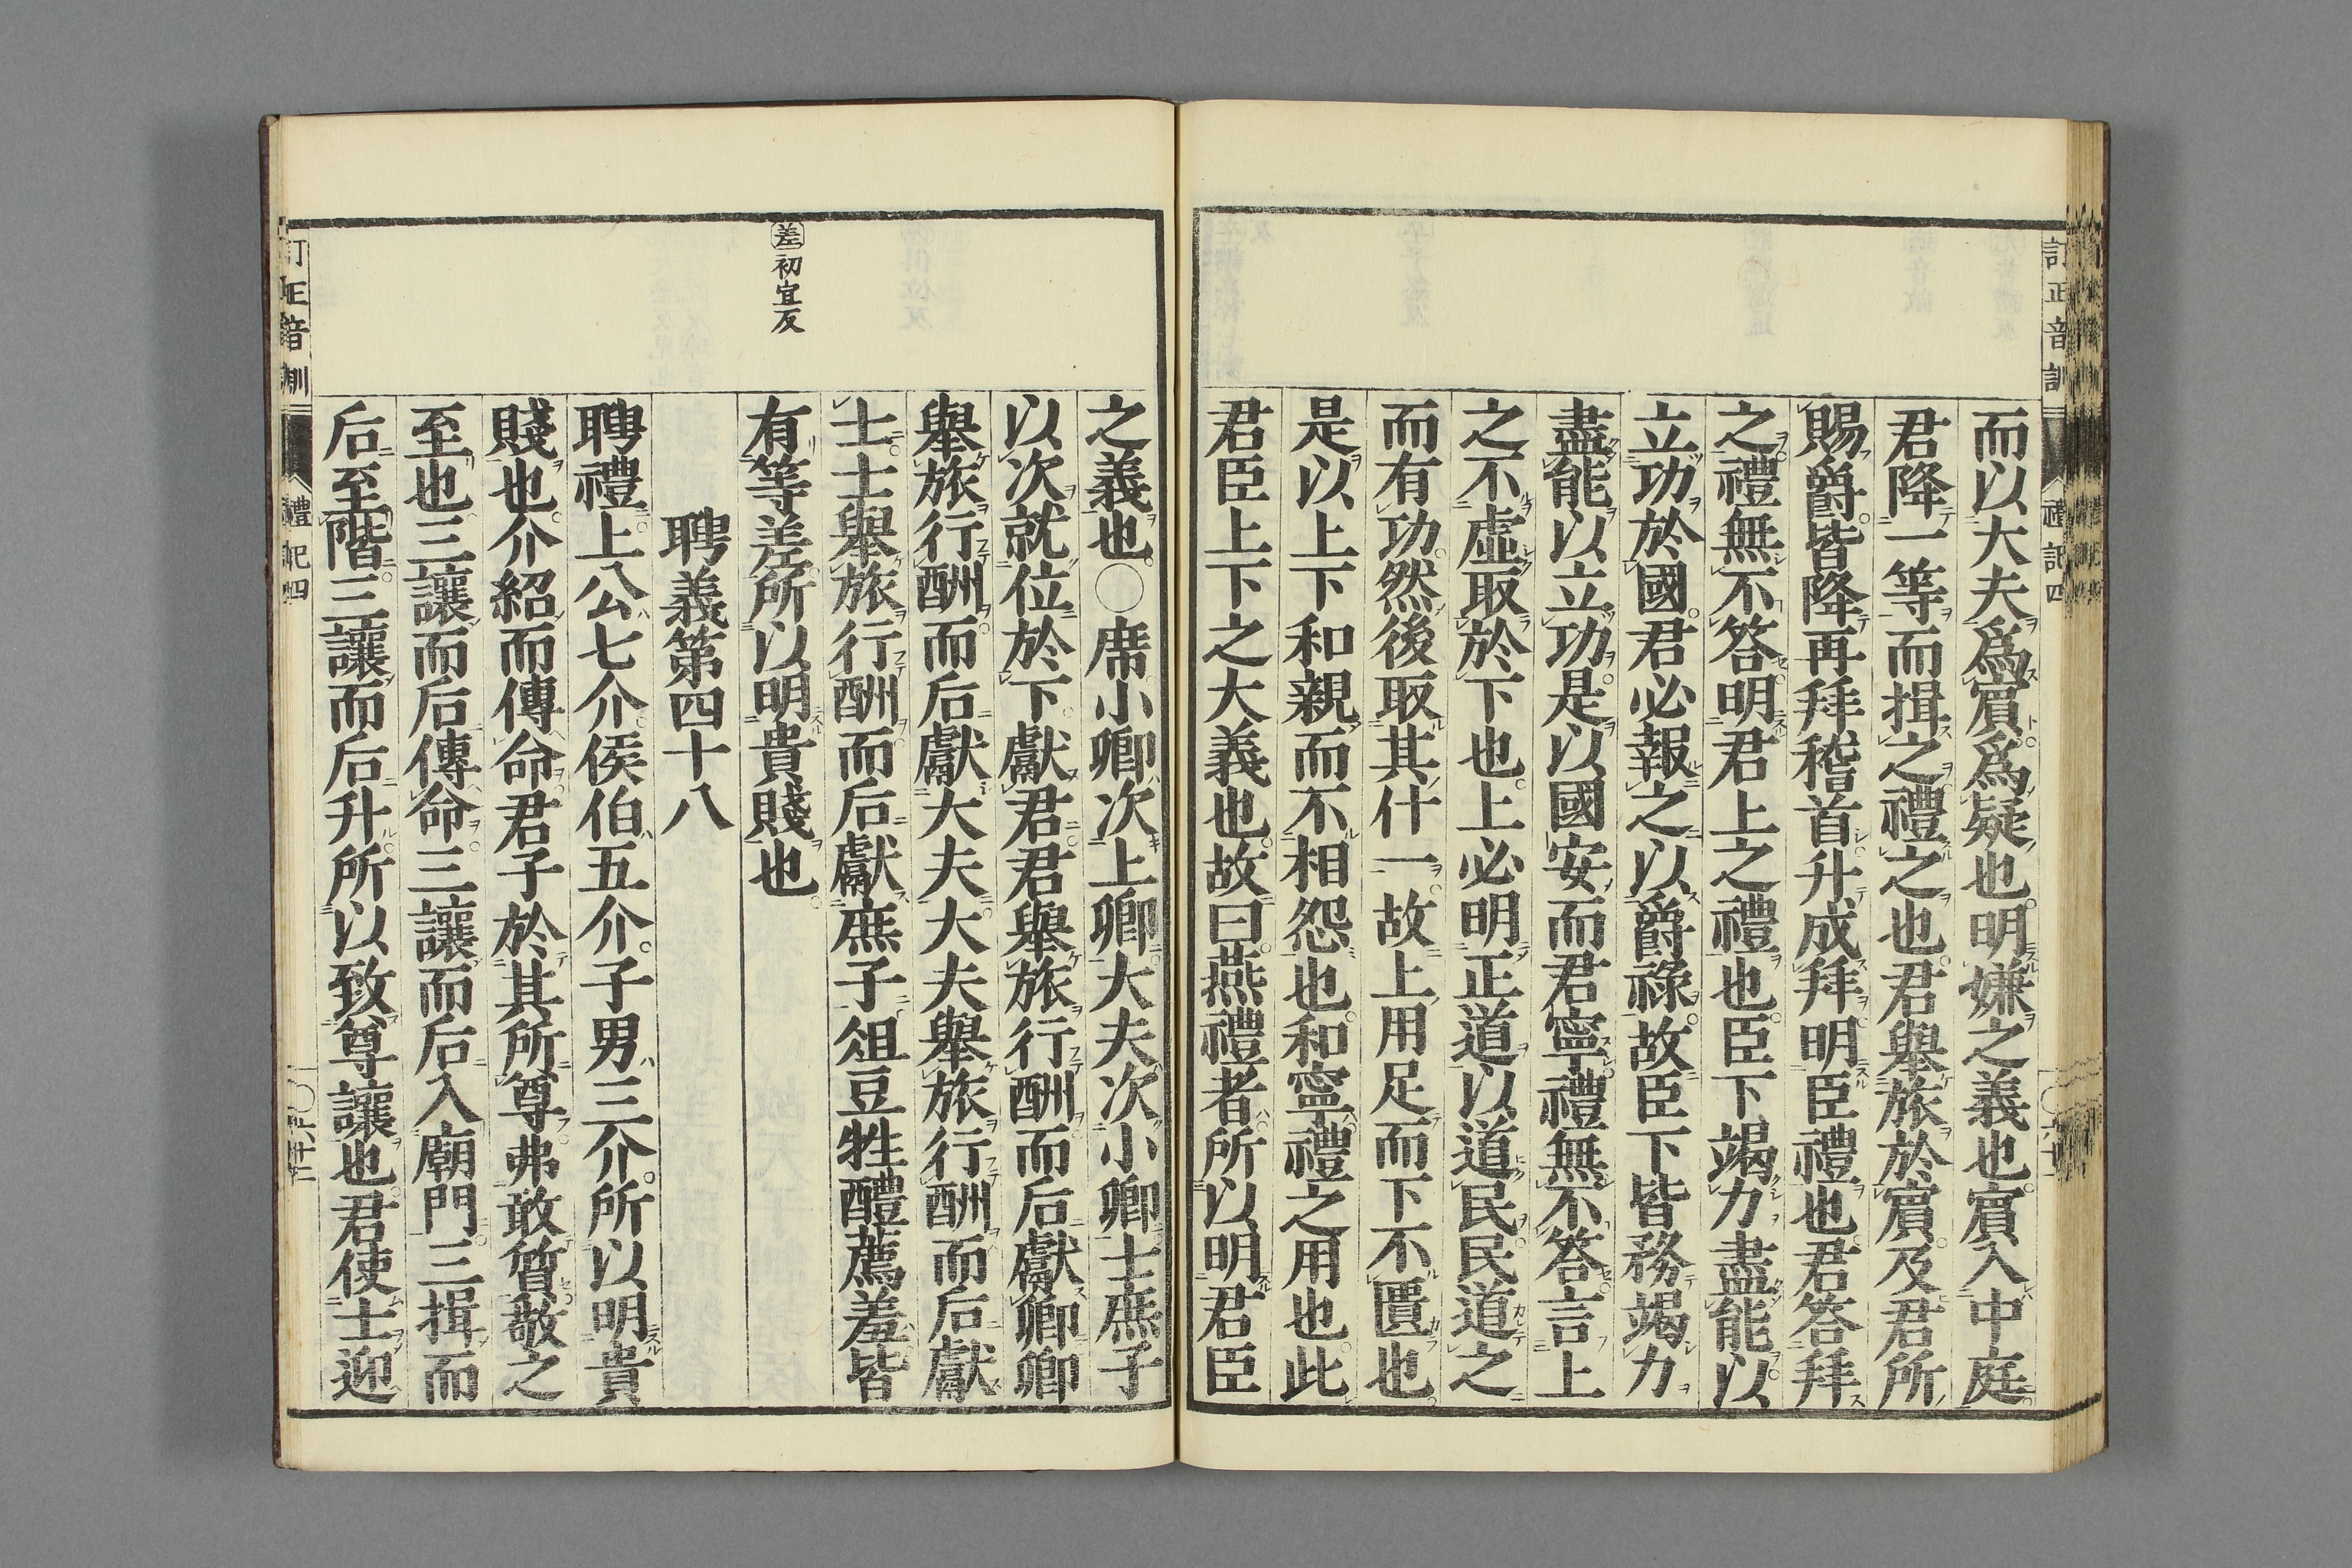 訂正音訓
禮記四
而以大夫爲賔爲疑也明嫌之義也賔入中庭
君降一等而揖之禮之也君舉旅於賔及君所
賜爵皆降再拜稽首升成拜明臣禮也君答拜
之禮無不答明君上之禮也臣下竭力盡能以
立功於國君必報之以爵祿故臣下皆務竭力
盡能以立功是以國安而君寧禮無不答言上
之不虛取於下也上必明正道以道民民道之
而有功然後取其什一故上用足而下不匱也
是以上下和親而不相怨也和寧禮之用也此
君臣上下之大義也故曰燕禮者所以明君臣
之義也○席小卿次上卿大夫次小卿士庶子
以次就位於下獻君君舉旅行酬而后獻卿卿
舉旅行酬而后獻大夫大夫舉旅行酬而后獻
士士舉旅行酬而后獻庶子俎豆牲醴薦羞皆
差初宜反
有等差所以明貴賤也
聘義第四十八
聘禮上公七介侯伯五介子男三介所以明貴
賤也介紹而傳命君子於其所尊弗敢質敬之
至也三讓而后傳命三讓而后入廟門三揖而
后至階三讓而后升所以致尊讓也君使士迎
訂正音訓
禮記四